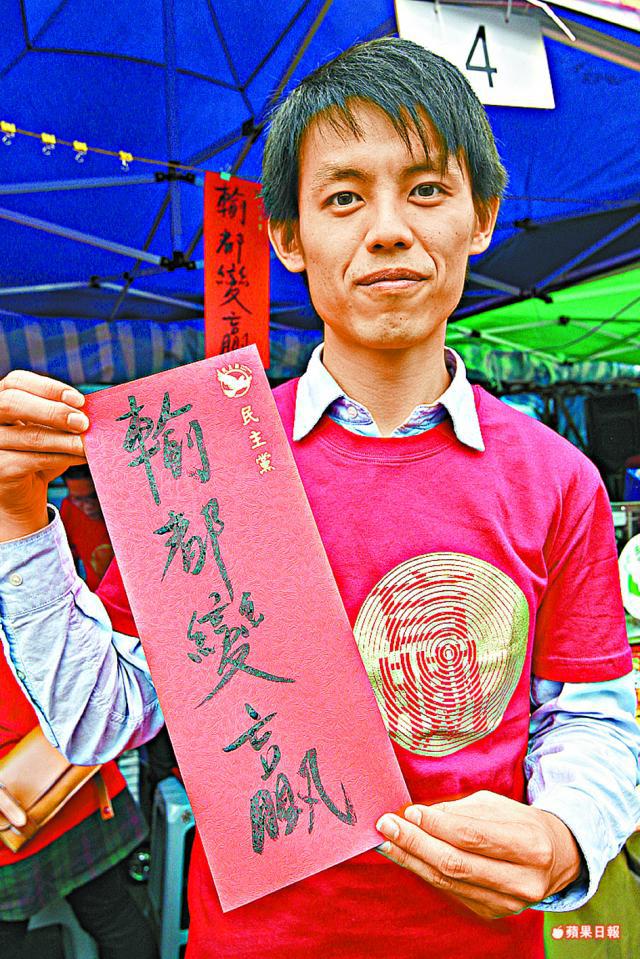 4
輸都變贏
民主黨
輸都變贏
蘋果日報